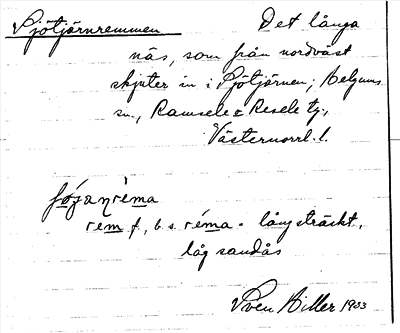 Sjötjärnremmen Det långa
näs, som från nordväst
skjuter in i Sjötjärnen; Helgums
sn., Ramsele & Resele tg.,
Västernorrl. l.
rem f., b. s. réma = långsträckt,
låg sandås
Sven Hiller 1933